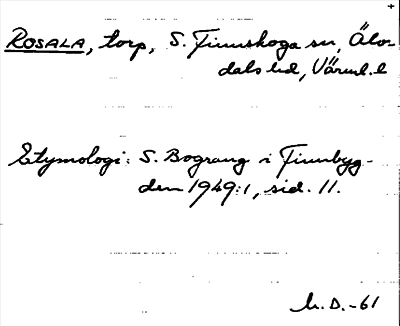 ROSALA, torp, S. Finnskoga sn, Älv
dals hd, Värml. l
Etymologi: S. Bograng i Finnbyg-
den 1949:1, sid. 11.
M. D. -61